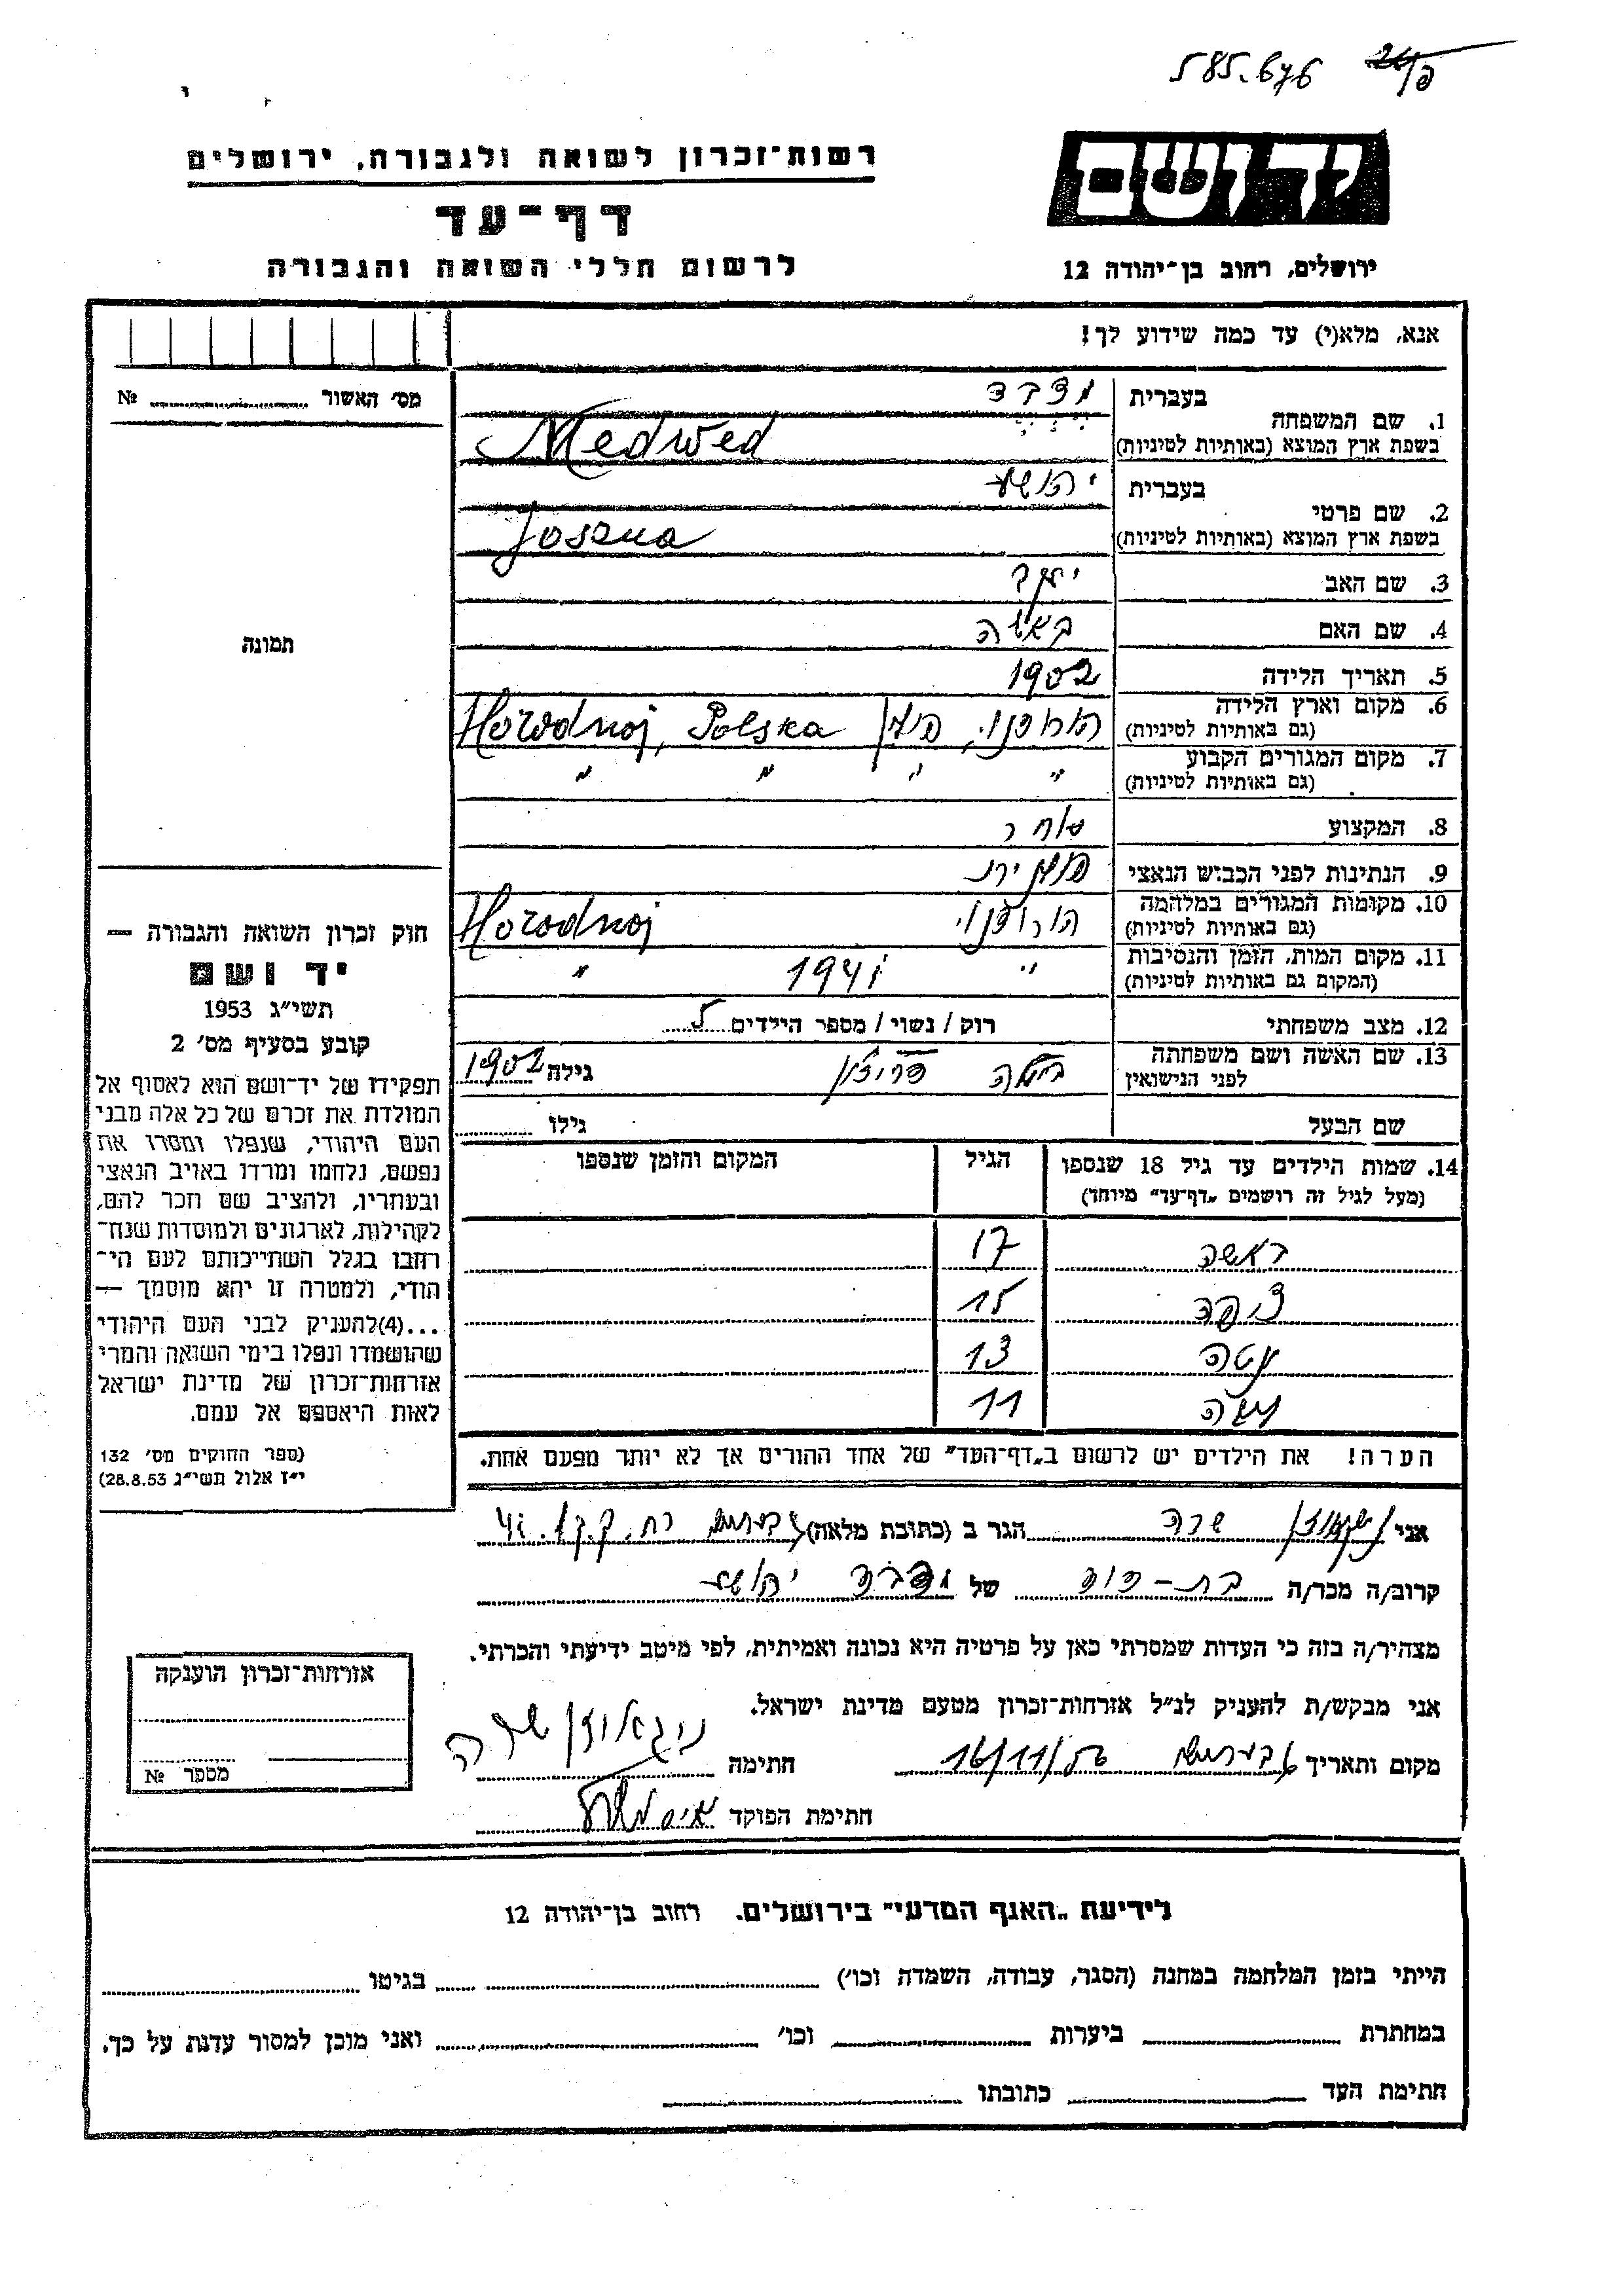 585.676
רשות־זכרון לשואה ולגבורה, ירושלים
יד ושם
דף־עד
לרשום חללי השואה והגבורה
ירושלים, רחוב בן־יהודה 12
אנא, מלא(י) עד כמה שידוע לך!
מס׳ האשור № 
1. שם המשפחה
בעברית מדבד
בשפת ארץ המוצא (באותיות לטיניות) Medwed
2. שם פרטי
בעברית יהושע
בשפת ארץ המוצא (באותיות לטיניות) Joszua
3. שם האב יעקב
4. שם האם באשה
5. תאריך הלידה 1902
6. מקום וארץ הלידה
(גם באותיות לטיניות) הורודנוי, פולין Horodnoj, Polska
7. מקום המגורים הקבוע
(גם באותיות לטיניות) " " " "
8. המקצוע סוחר
9. הנתינות לפני הכבוש הנאצי פולנית
10. מקומות המגורים במלחמה
(גם באותיות לטיניות) הורודנוי Horodnoj
11. מקום המות, הזמן והנסיבות
(המקום גם באותיות לטיניות) " 1941 "
12. מצב משפחתי רוק / נשוי / מספר הילדים 5
13. שם האשה ושם משפחתה
לפני הנישואין פרוצ'ון גילה 1902
שם הבעל גילו
14. שמות הילדים עד גיל 18 שנספו הגיל המקום והזמן שנספו
(מעל לגיל זה רושמים „דף־עד” מיוחד)
ראשה 17
15
מטה 13
משה 11
הערה! את הילדים יש לרשום ב„דף־העד” של אחד ההורים אך לא יותר מפעם אחת.
תמונה
חוק זכרון השואה והגבורה —
יד ושם
תשי״ג 1953
קובע בסעיף מס׳ 2
תפקידו של יד־ושם הוא לאסוף אל
המולדת את זכרם של כל אלה מבני
העם היהודי, שנפלו ומסרו את
נפשם, נלחמו ומרדו באויב הנאצי
ובעוזריו, ולהציב שם וזכר להם,
לקהילות, לארגונים ולמוסדות שנח־
רחבו בגלל השתייכותם לעם הי־
הודי, ולמטרה זו יהא מוסמך —
...(4)להעניק לבני העם היהודי
שהושמדו ונפלו בימי השואה והמרי
אזרחות־זכרון של מדינת ישראל
לאות היאספם אל עמם.
(ספר החוקים מס׳ 132
י״ז אלול תשי״ג 28.8.53)
אני שרה הגר ב (כתובת מלאה) רח. ק.ק.ל. 41
קרוב/ה מכר/ה בת-דוד של מדבד יהושע
מצהיר/ה בזה כי העדות שמסרתי כאן על פרטיה היא נכונה ואמיתית, לפי מיטב ידיעתי והכרתי.
אני מבקש/ת להעניק לנ״ל אזרחות־זכרון מטעם מדינת ישראל.
מקום ותאריך 16/11/56 חתימה שרה
חתימת הפוקד
אזרחות־זכרון הוענקה
מספר №
לידיעת „האגף המדעי” בירושלים. רחוב בן־יהודה 12
הייתי בזמן המלחמה במחנה (הסגר, עבודה, השמדה וכו׳) בגיטו
במחתרת ביערות וכו׳ ואני מוכן למסור עדות על כך.
חתימת העד כתובתו